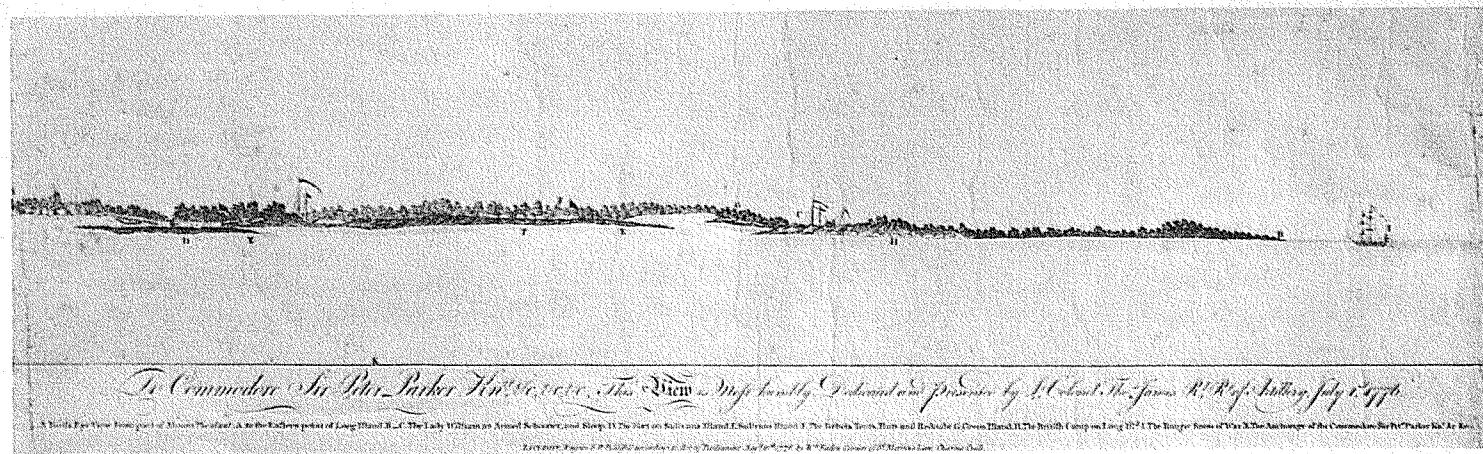 To Commodore Sir Peter Parker Knt. &c, &c, &c, This View is Most humbly Dedicated and Presented by Lt. Colonel Thos. James Rl. Rt. of Artillery, July 1st 1776
A North East View from part of Mount Pleasant. A to the Eastern point of Long Island. B_C. The Lady William an Armed Schooner, and Sloop. D. The Fort on Sulivans Island. E. Sulivans Island. F. The Rebels Tents, Huts and Redoubt. G. Green Island. H. The British Camp on Long Isd. I. The Ranger Sloop of War. K. The Anchorage of the Commodore Sir Petr. Parker Knt.
according to Act of Parliament by Wm. Faden Corner of St. Martins Lane, Charing Cross.